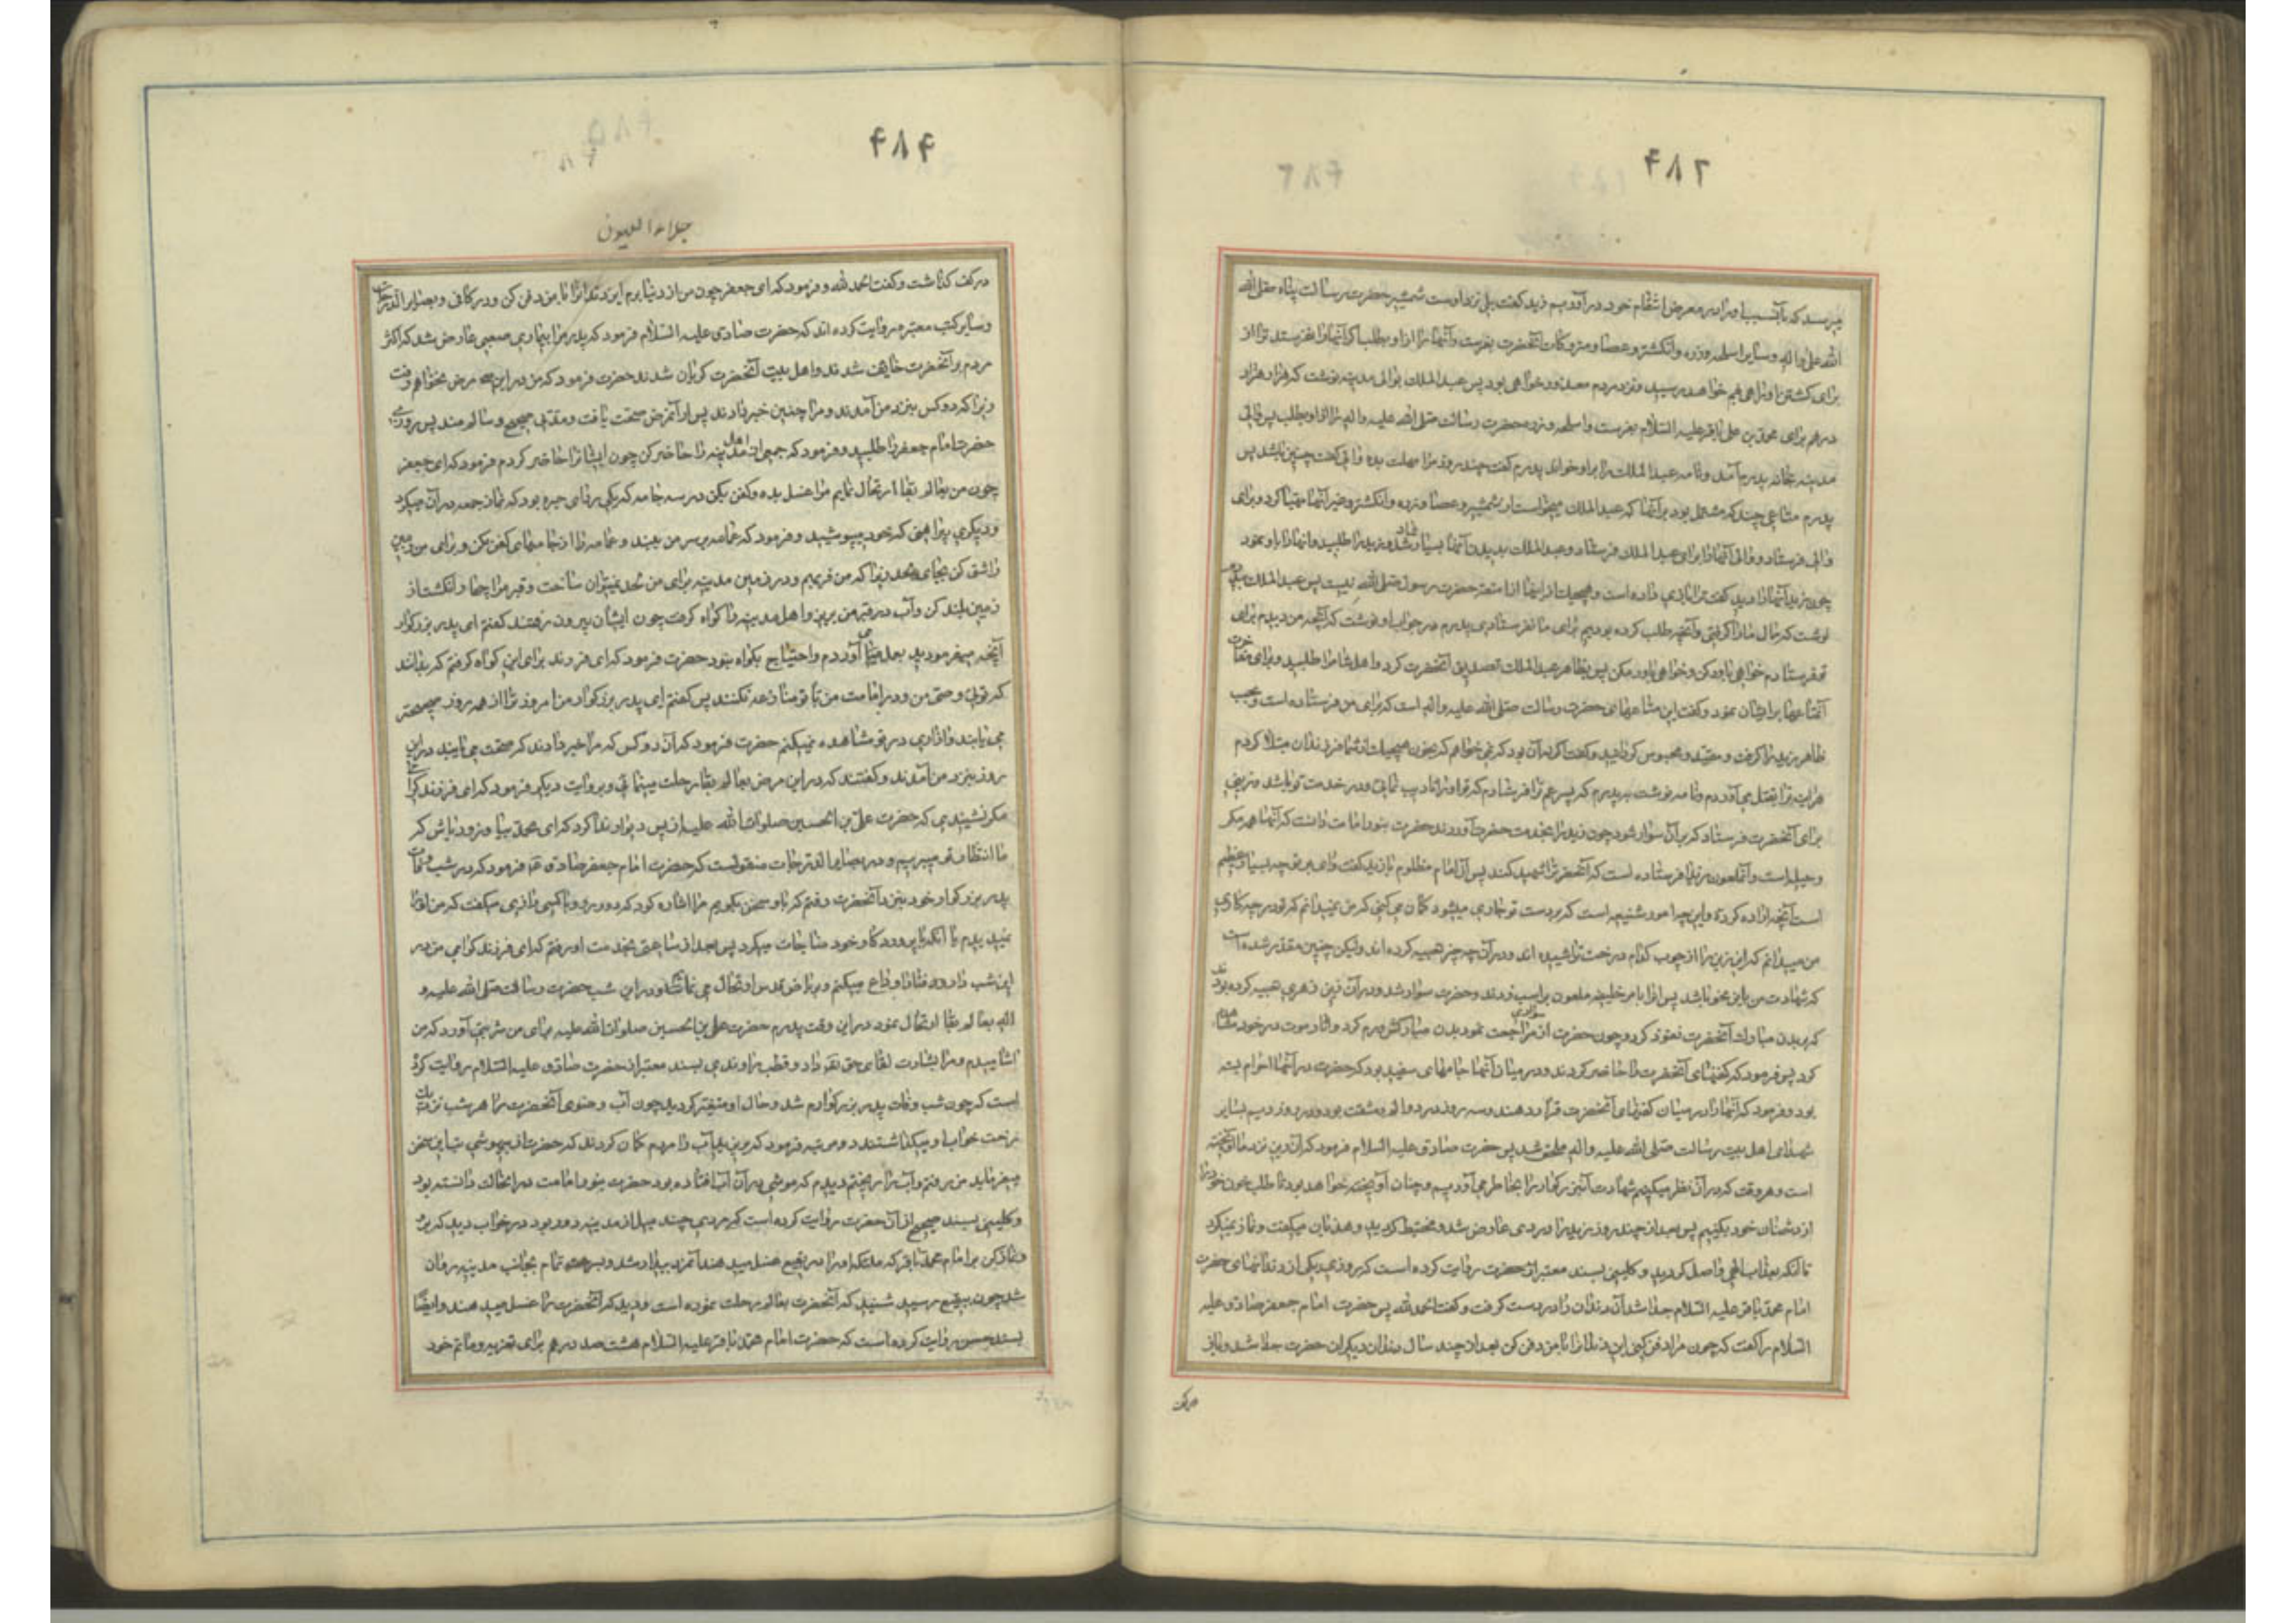 ۴۸۳
میرسد که بآن سبب او را در معرض انتقام خود درآوریم زید گفت بلی نزد اوست شمشیر حضرت رسالت پناه صلی الله
الله علیه واله وسایر اسلحه وزره وانگشتر وعصا ومتروکات آنحضرت بفرست وآنها را از او بطلب اگر آنها را نفرستد ترا از
برای کشتن او راهی هم خواهد رسید ونزد مردم معذور خواهی بود پس عبدالملک بوالی مدینه نوشت که هزار هزار
درهم برای محمد بن علی باقر علیه السلام بفرست واسلحه وزره حضرت رسالت صلی الله علیه واله را از او بطلب پس والی
مدینه بخانه پدرم آمد ونامه عبدالملک را بر او خواند پدرم گفت چند روز مرا مهلت بده والی گفت چنین باشد پس
پدرم متاعی چند که مشتمل بود بر آنها که عبدالملک میخواست از شمشیر وعصا وزره وانگشتر وغیر آنها مهیا کرد وبرای
والی فرستاد ووالی آنها را برای عبدالملک فرستاد وعبدالملک بدیدن آنها بسیار شاد شد وزید را طلبید وآنها را باو نمود
چون زید آنها را دید گفت ترا بازی داده است وهیچیک از اینها از امتعه حضرت رسول صلی الله نیست پس عبدالملک بپدرم
نوشت که مال ما را گرفتی وآنچه طلب کرده بودیم برای ما نفرستادی پدرم در جواب او نوشت که آنچه من دیدم برای
تو فرستادم خواهی باور کن وخواهی باور مکن پس بظاهر عبدالملک تصدیق آنحضرت کرد واهل شام را طلبید وبرای مفاخرت
آنمتاعها را بایشان نمود وگفت این متاعهای حضرت رسالت صلی الله علیه واله است که برای من فرستاده است وبحسب
ظاهر زید را گرفت ومقید ومحبوس گردانید وگفت اگر نه آن بود که نمی خواهم که بخون هیچیک از شما فرزندان مبتلا گردم
هرآینه ترا بقتل می آوردم ونامه نوشت بپدرم که پسر عم ترا فرستادم که تو او را تادیب نمائی ودر خدمت تو باشد وزینی
برای آنحضرت فرستاد که بر آن سوار شود چون زید را بخدمت حضرت آوردند حضرت بنور امامت دانست که آنها همه مکر
وحیله است وآنملعون زید را فرستاده است که آنحضرت را شهید کند پس آن امام مظلوم با زید گفت وای بر تو چه بسیار عظیم
است آنچه اراده کردۀ واین چه امور شنیعه است که بر دست تو جاری میشود گمان می کنی که من نمیدانم که تو در چه کاری
من میدانم که این زین را از چوب کدام درخت تراشیده اند ودر آن چه چیز تعبیه کرده اند ولیکن چنین مقدر شده است
که شهادت من باین نحو باشد پس آنرا بامر خلیفه ملعون بر اسب زدند وحضرت سوار شد ودر آن زین زهری تعبیه کرده بودند
که ببدن مبارک آنحضرت نفوذ کرد وچون حضرت از سواری مراجعت نمود بدن مبارکش ورم کرد وآثار موت در خود مشاهده
کرد پس فرمود که کفنهای آنحضرت را حاضر کردند ودر میان آنها جامهای سفید بود که حضرت در آنها احرام بسته
بود وفرمود که آنها را در میان کفنهای آنحضرت قرار دهند وسه روز در درد والم ومشقت بود ودر روز سیم بسایر
شهدای اهل بیت رسالت صلی الله علیه واله ملحق شد پس حضرت صادق علیه السلام فرمود که آن زین نزد ما آویخته
است وهر وقت که در آن نظر میکنیم شهادت آن بزرگوار را بخاطر می آوریم وچنان آویخته خواهد بود تا طلب خون خود را
از دشمنان خود بکنیم پس بعد از چند روز زید را دردی عارض شد ومختبط گردید وهذیان میگفت ونماز نمیکرد
تا آنکه بعذاب الهی واصل گردید وکلینی بسند معتبر از حضرت روایت کرده است که روزی یکی از دندانهای حضرت
امام محمد باقر علیه السلام جدا شد آن دندان را در دست گرفت وگفت الحمد لله پس حضرت امام جعفر صادق علیه
السلام را گفت که چون مرا دفن کنی این دندان را با من دفن کن بعد از چند سال دندان دیگر آن حضرت جدا شد وباز
در کف
۴۸۴
جلاء العیون
در کف گذاشت وگفت الحمد لله وفرمود که ای جعفر چون من از دنیا بروم این دندانرا با من دفن کن ودر کافی وبصایر الدرجات
وسایر کتب معتبره روایت کرده اند که حضرت صادق علیه السلام فرمود که پدر مرا بیماری صعبی عارض شد که اکثر
مردم بر آنحضرت خایف شدند واهل بیت آنحضرت گریان شدند حضرت فرمود که من در این مرض نخواهم رفت
زیرا که دو کس بنزد من آمدند ومرا چنین خبر دادند پس از آنمرض صحت یافت ومدتی صحیح وسالم ماند پس روزی
حضرت امام جعفر را طلبید وفرمود که جمعی از اهل مدینه را حاضر کن چون ایشانرا حاضر کردم فرمود که ای جعفر
چون من بعالم بقا ارتحال نمایم مرا غسل بده وکفن بکن در سه جامه که یکی ردای حبره بود که نماز جمعه در آن میکرد
ودیگری پیراهنی که خود میپوشید وفرمود که عمامه بر سر من ببند وعمامه را از جامهای کفن مکن وبرای من زمین
را شق کن بجای لحد زیرا که من فربهم ودر زمین مدینه برای من لحد نمیتوان ساخت وقبر مرا چهار انگشت از
زمین بلند کن وآب در قبر من بریز واهل مدینه را گواه گرفت چون ایشان بیرون رفتند گفتم ای پدر بزرگوار
آنچه میفرمودید بعمل می آوردم واحتیاج بگواه نبود حضرت فرمود که ای فرزند برای این گواه گرفتم که بدانند
که توئی وصی من ودر امامت من با تو منازعه نکنند پس گفتم ای پدر بزرگوار من امروز ترا از همه روز صحیحتر
می یابند وآزاری در تو مشاهده نمیکنم حضرت فرمود که آن دو کس که مرا خبر دادند که صحت می یابید در این
روز بنزد من آمدند وگفتند که در این مرض بعالم بقا رحلت مینمائی وبروایت دیگر فرمود که ای فرزند گرامی
مگر نشنیدی که حضرت علی بن الحسین صلوات الله علیه از پس دیوار ندا کرد که ای محمد بیا وزود باش که
ما انتظار تو میبریم ودر بصایر الدرجات منقولست که حضرت امام جعفر صادق ع فرمود که در شب وفات
پدر بزرگوار خود بنزد آنحضرت رفتم که با او سخن بگویم مرا اشاره کرد که دور رو وبا کسی رازی میگفت که من او را
نمیدیدم یا آنکه با پروردگار خود مناجات میکرد پس بعد از ساعتی بخدمت او رفتم که ای فرزند گرامی من در
این شب دار فنا را وداع میکنم وبریاض قدس ارتحال می نمایم ودر این شب حضرت رسالت صلی الله علیه و
اله بعالم بقا ارتحال نمود در این وقت پدرم حضرت علی بن الحسین صلوات الله علیه برای من شربتی آورد که من
آشامیدم ومرا بشارت لقای حق تع داد وقطب راوندی بسند معتبر از حضرت صادق علیه السلام روایت کرده
است که چون شب وفات پدر بزرگوارم شد وحال او متغیر گردید چون آب وضوی آنحضرت را هر شب نزدیک
رخت خواب او میگذاشتند دو مرتبه فرمود که بریزید آب را مردم گمان کردند که حضرت از بیهوشی تب این سخن
میفرماید من رفتم وآب را ریختم دیدم که موشی در آن آب افتاده بود حضرت بنور امامت در آنحال دانسته بود
وکلینی بسند صحیح از آن حضرت روایت کرده است که مردی چند میل از مدینه دور بود در خواب دید که برو
ونماز کن بر امام محمد باقر که ملئکه او را در بقیع غسل میدهند آنمرد بیدار شد وبسرعت تمام بجانب مدینه روان
شد چون ببقیع رسید شنید که آنحضرت بعالم رحلت نموده است ودید که آنحضرت را غسل میدهند وایضا
بسند حسن روایت کرده است که حضرت امام محمد باقر علیه السلام هشتصد درهم برای تعزیه وماتم خود